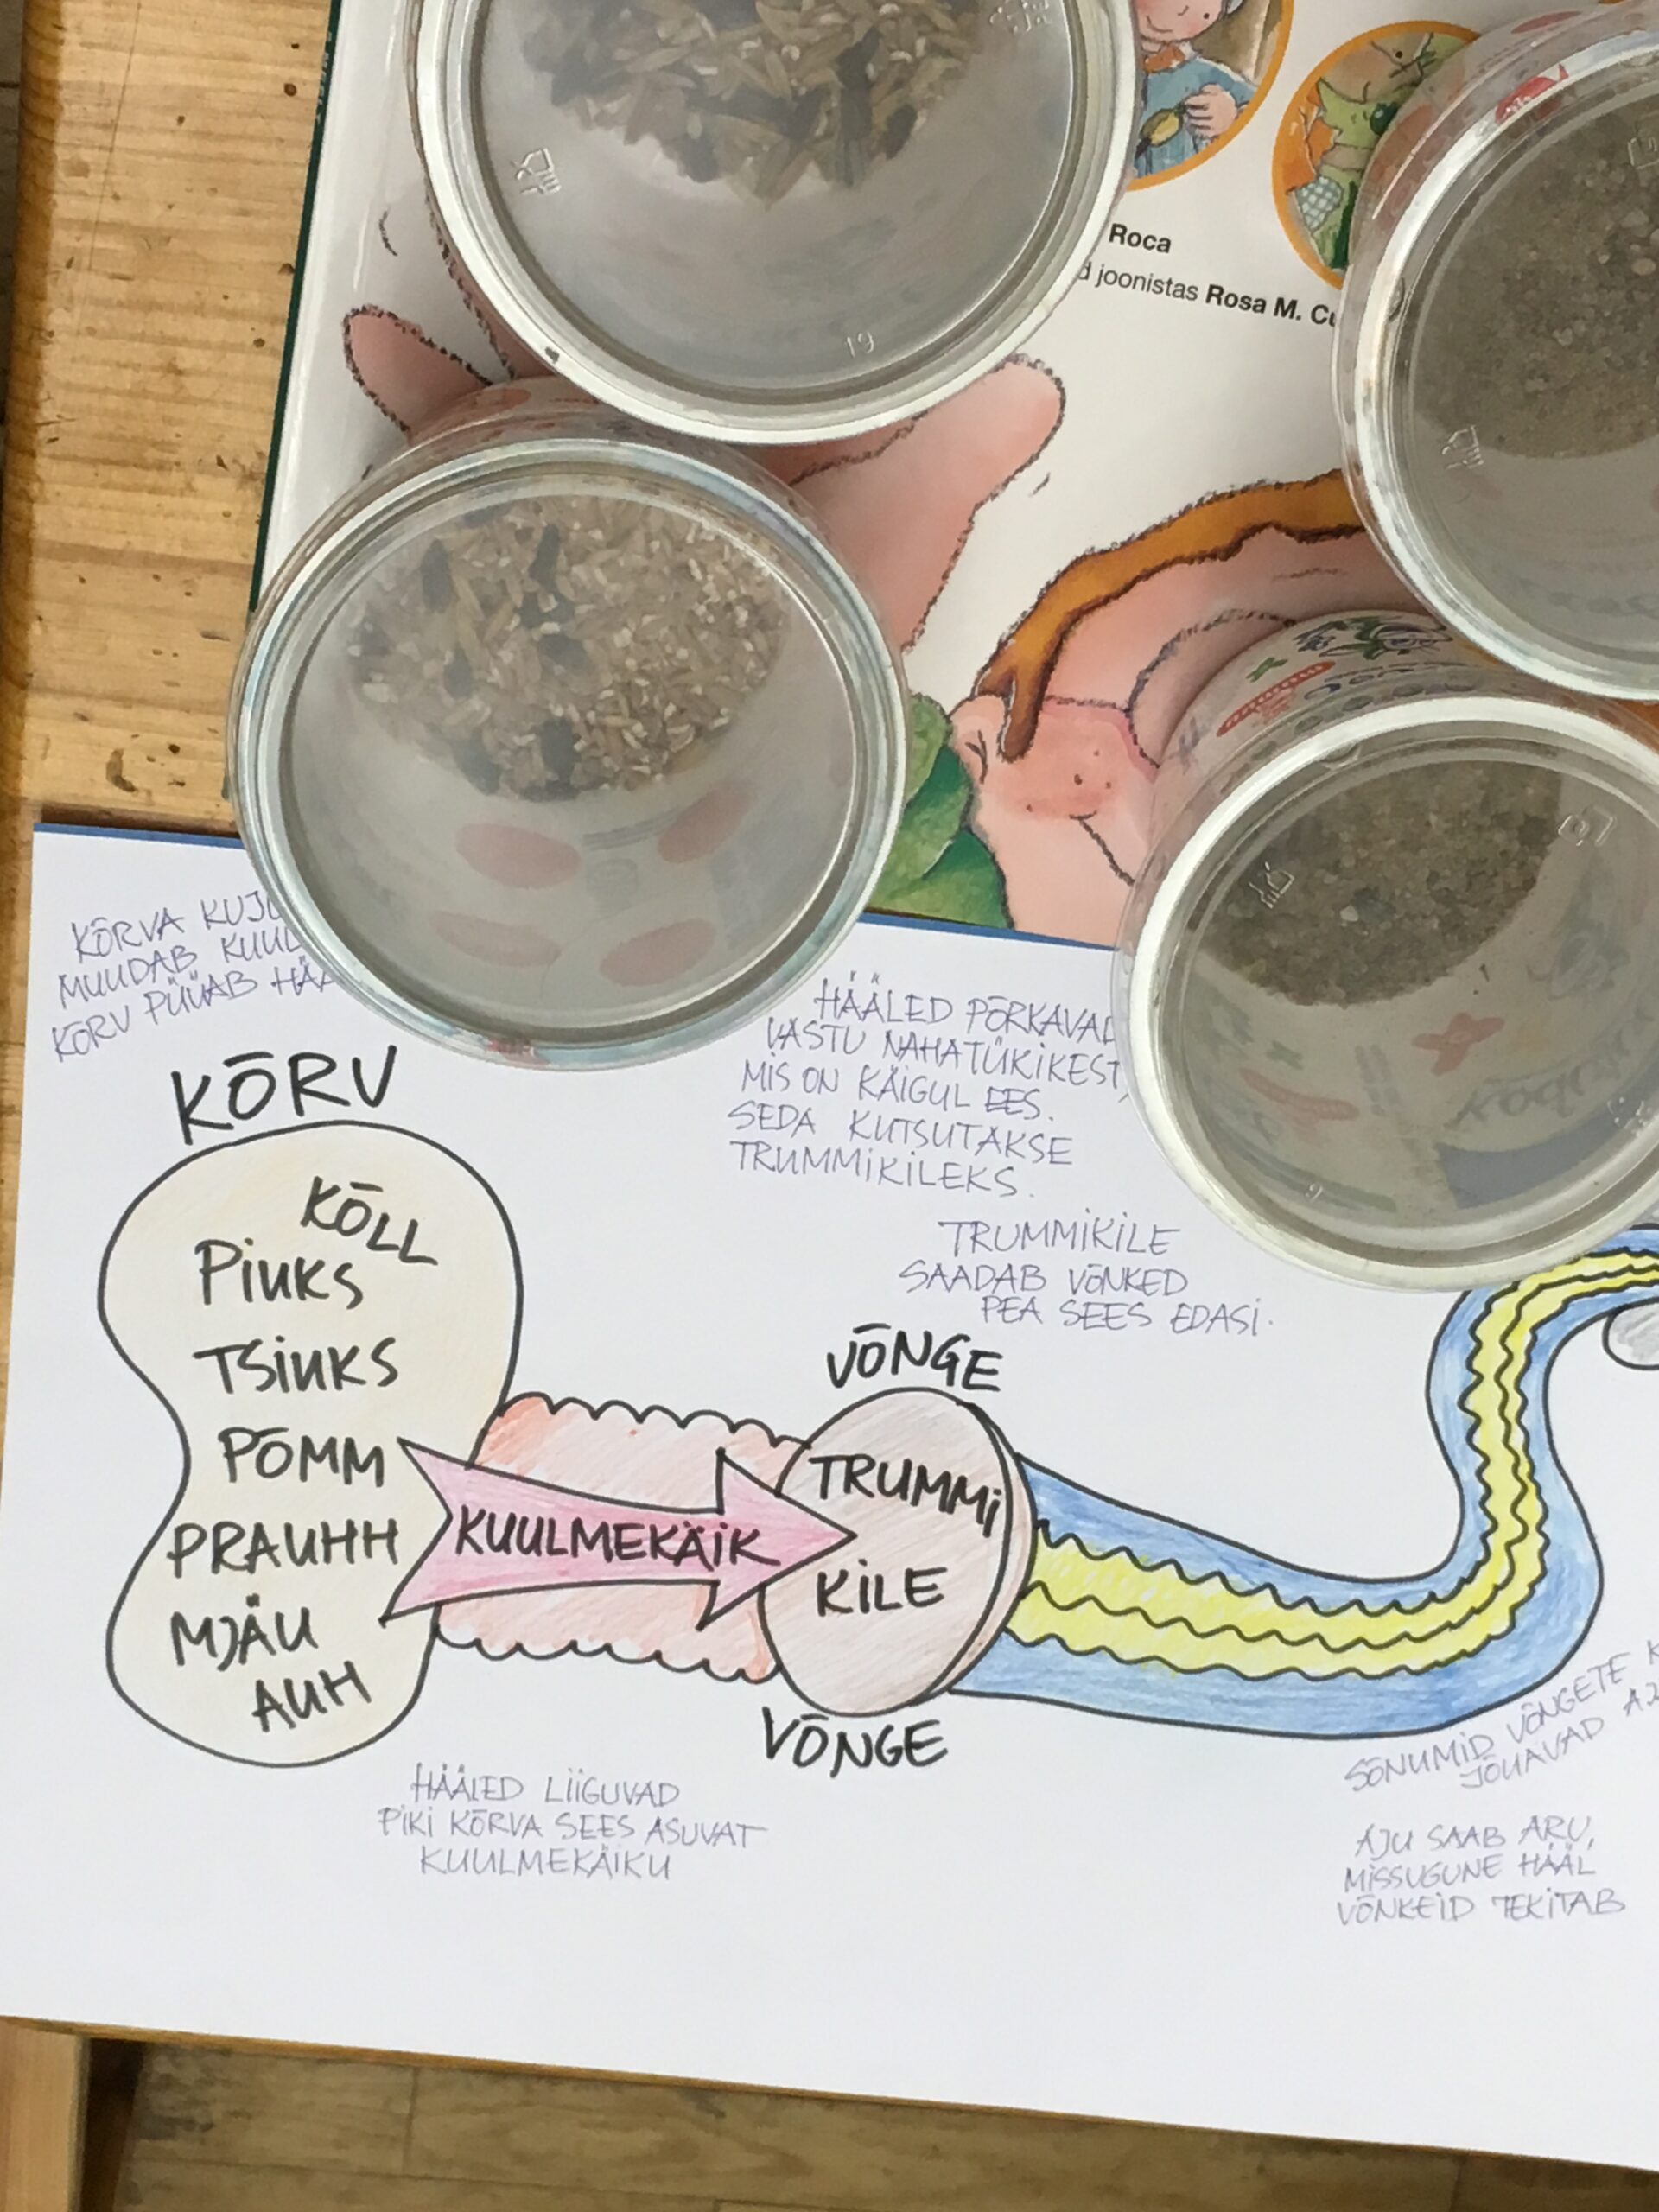 Roca
d joonistas Rosa M. Cu
19
KÕRVA KUJU
MUUDAB KUUL
KÕRV PÜÜAB HÄÄ
HÄÄLED PÕRKAVAD
VASTU NAHATÜKIKEST,
MIS ON KÄIGUL EES.
SEDA KUTSUTAKSE
TRUMMIKILEKS.
TRUMMIKILE
SAADAB VÕNKED
PEA SEES EDASI.
KÕRV
KÕLL
PIUKS
TSIUKS
PÕMM
PRAUHH
MJÄU
AUH
KUULMEKÄIK
VÕNGE
TRUMMI
KILE
VÕNGE
HÄÄLED LIIGUVAD
PIKI KÕRVA SEES ASUVAT
KUULMEKÄIKU
SÕNUMID VÕNGETE K
JÕUAVAD AJ
AJU SAAB ARU,
MISSUGUNE HÄÄL
VÕNKEID TEKITAB